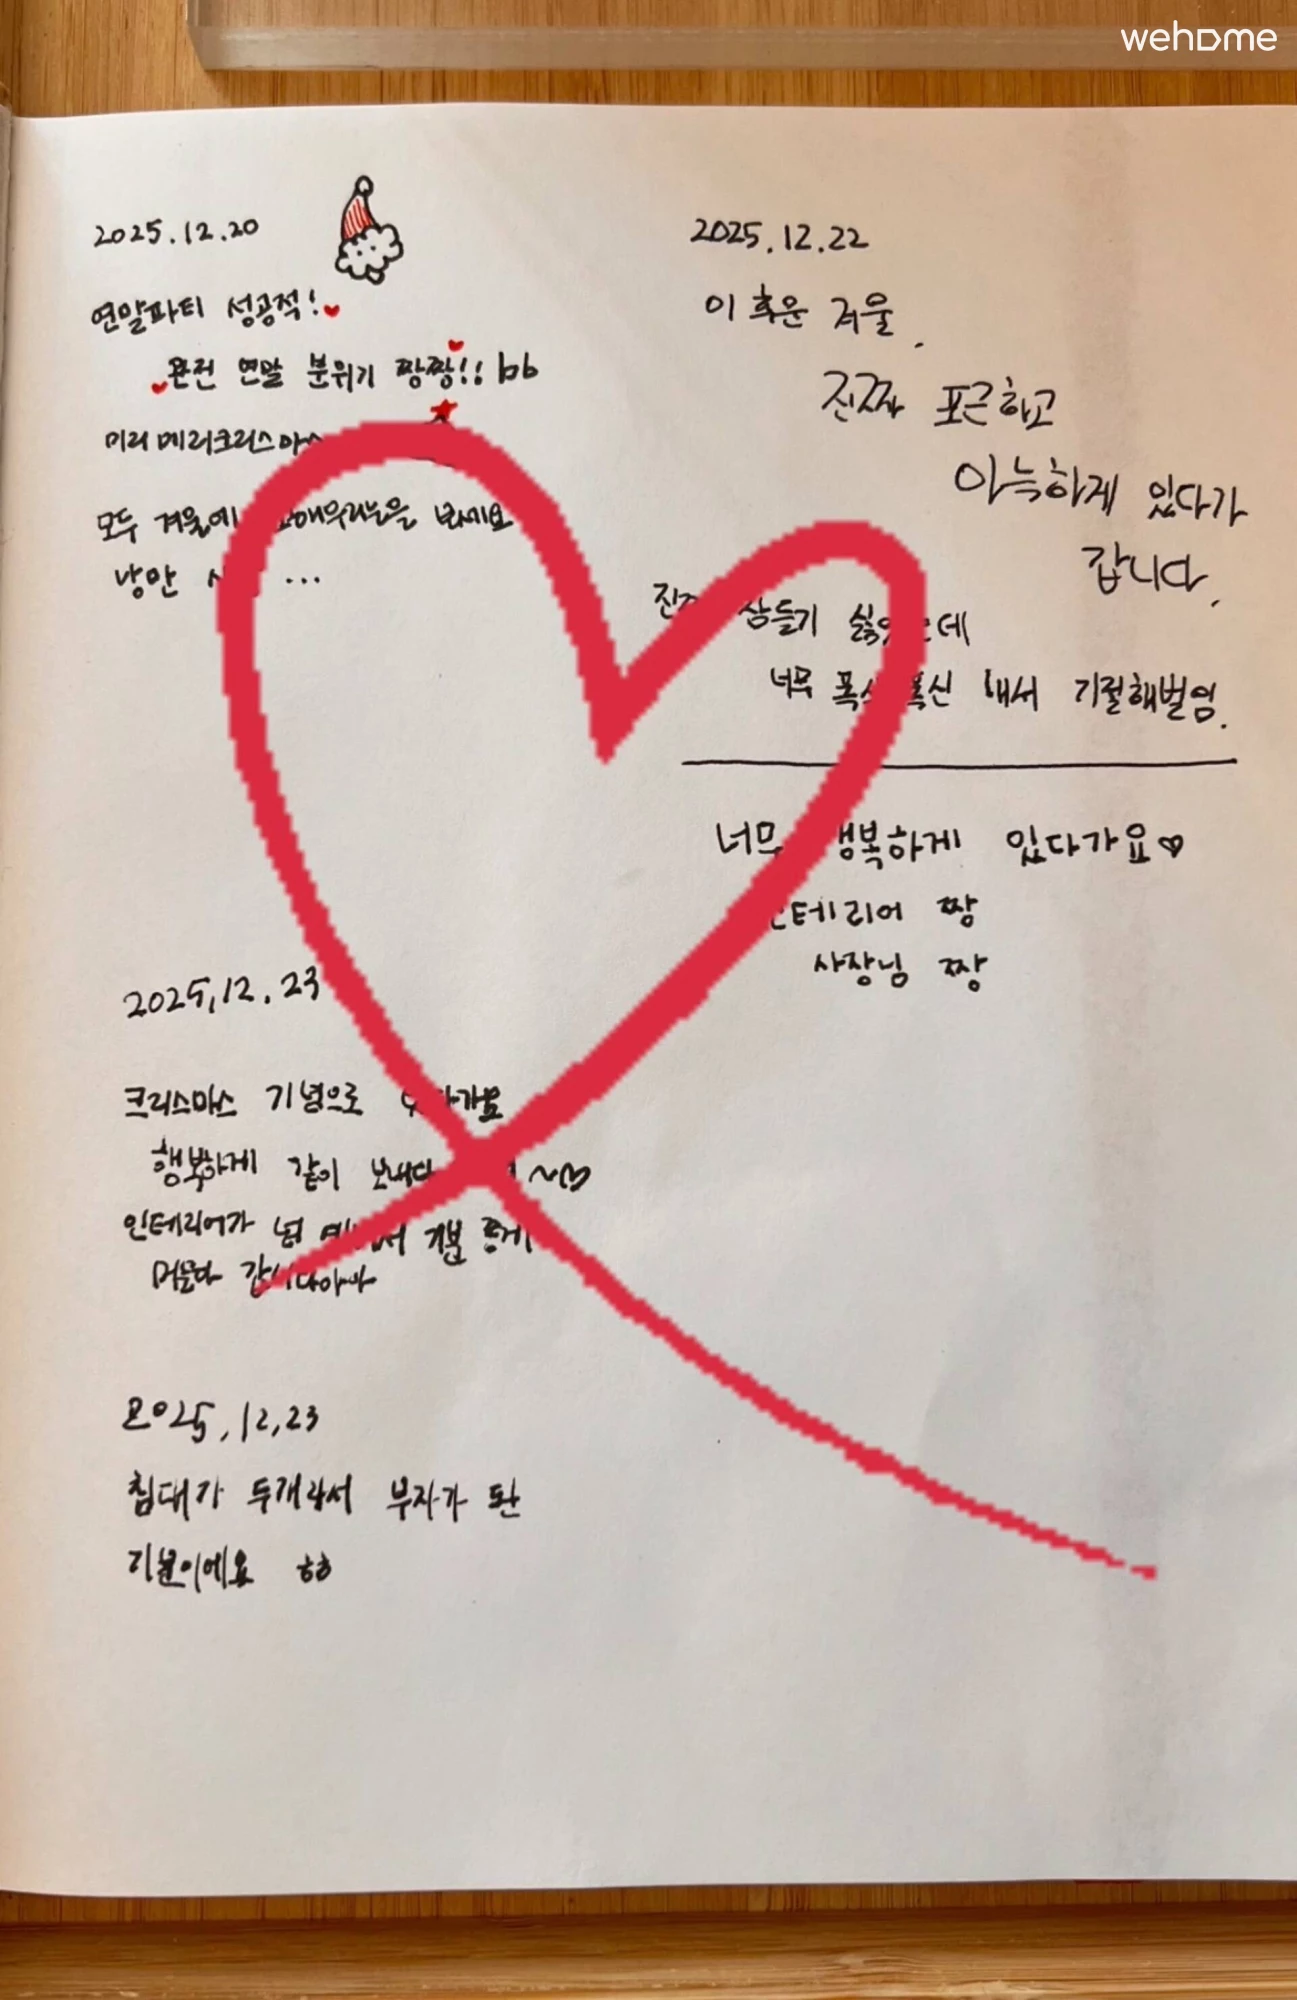 wehome
2025.12.20
연말파티 성공적!
완전 연말 분위기 짱짱!! bb
미리 메리크리스마스
모두 겨울에 보세요
낭만 ...
2025.12.23
크리스마스 기념으로
행복하게 같이 보내다 ~
인테리어가 넘 기분 좋게
머물다 갑니다아아
2025.12.23
침대가 두개라서 부자가 된
기분이에요 ㅎㅎ
2025.12.22
이 추운 겨울.
진짜 포근하고
아늑하게 있다가
갑니다.
잠들기 싫었는데
너무 폭신폭신 해서 기절해벌임.
너무 행복하게 있다가요♡
인테리어 짱
사장님 짱